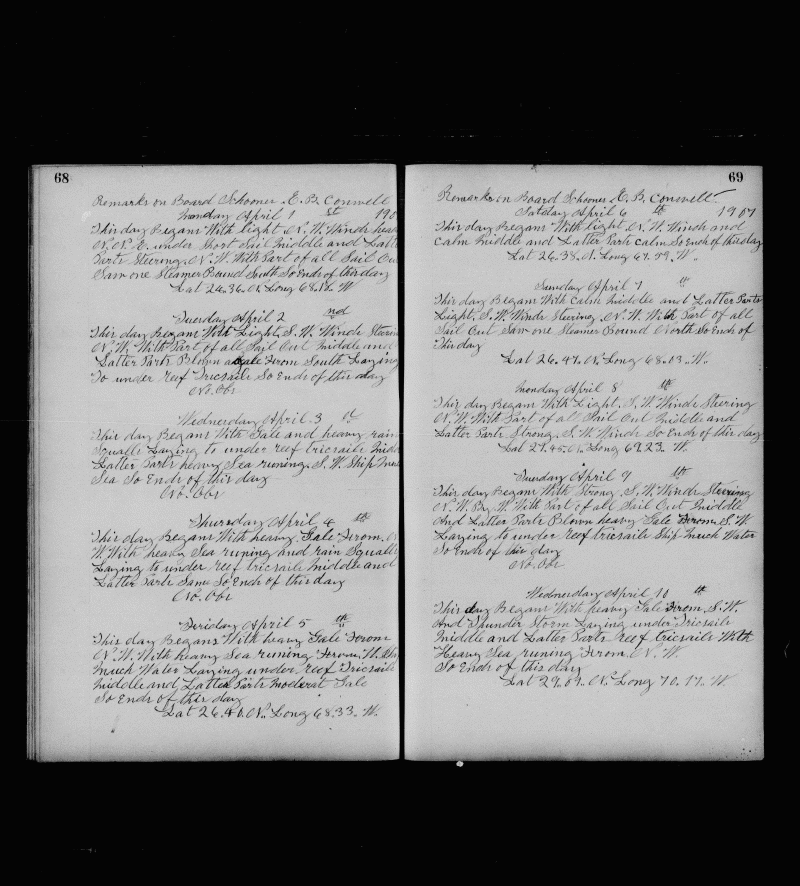 68
Remarks on Board Schooner E. B. Conwell
Monday April 1 st 190
This day Begans With light N. W. Winds head
N. N. E. under Short Sail Middle and Latt
Parts Steering N. W. With Part of all Sail Out
Saw one Steamer Bound South So Ends of this day
Lat 26.36. N. Long 68.18. W
Tuesday April 2 nd
This day Began With Light S. W. Winds Steerin
N. W. With Part of all Sail Out Middle and
Latter Parts Blown a Gale From South Laying
To under reef Tricsails So Ends of this day
No. Obs
Wednesday April 3 d
This day Began With Gale and heavy rain
Squalls Laying to under reef tricsails Midd
Latter Parts heavy Sea runing. S. W. Ship Much
Sea So Ends of this day
No. Obs
Thursday April 4 th
This day Began With heavy Gale From N
W. With heavy Sea runing and rain Squalls
Laying to under reef tricsails Middle and
Latter Parts Same So Ends of this day
No. Obs
Feriday April 5 th
This day Begans With heavy Gale From
N. W. With heavy Sea runing From. W. Ship
Much Water Laying under reef Tricsails
Middle and Latter Parts Moderat Gale
So Ends of this day
Lat 26.40. N. Long 68.33. W.
69
Remarks on Board Schooner E. B. Conwell
Satday April 6 th 1907
This day Begans With Light N. W Winds and
Calm Middle and Latter Parts Calm So Ends of this day
Lat 26.38. N. Long 67.59 W.
Sunday April 7 th
This day Began With Calm Middle and Latter Parts
Light. S. W. Winds Steering. N. W. With Part of all
Sail Out Saw one Steamer Bound North So Ends of
This day
Lat 26.47. N. Long 68.03. W.
Monday April 8 th
This day Began With Light. S. W Winds Steering
N. W. With Part of all Sail Out Middle and
Latter Parts Strong. S. W Winds So Ends of this day
Lat 27.45. N. Long 69.23 W.
Tuesday April 9 th
This day Began With Strong. S. W. Winds Steering
N. W. By W. With Part of all Sail Out Middle
And Latter Parts Blown heavy Gale From. S. W
Laying to under reef tricsails Ship Much Water
So Ends of this day
No. Obs
Wednesday April 10 th
This day Began With heavy Gale From. S. W.
And Thunder Storm Laying under Tricsails
Middle and Latter Parts reef tricsails With
Heavy Sea runing From. N. W
So Ends of this day
Lat 29.09. N. Long 70.17. W